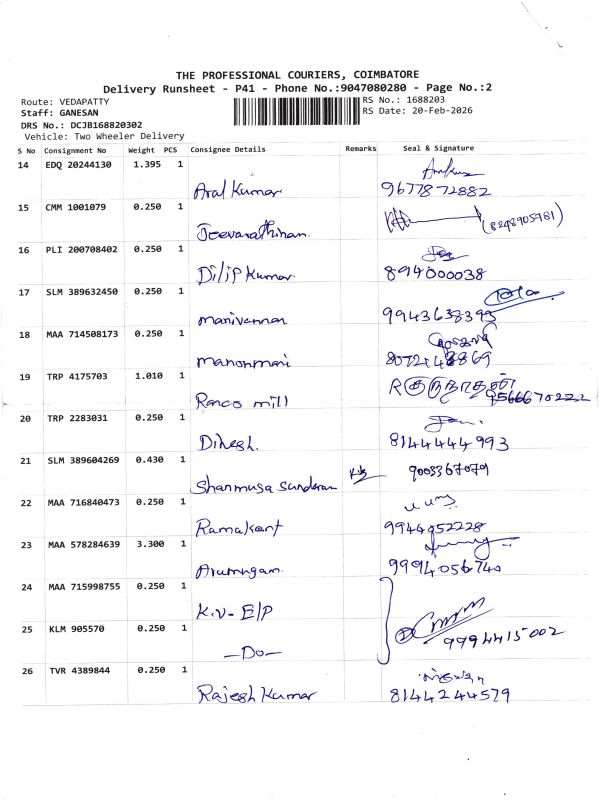 THE PROFESSIONAL COURIERS, COIMBATORE
Delivery Runsheet - P41 - Phone No.:9047080280 - Page No.:2
Route: VEDAPATTY
RS No.: 1688203
Staff: GANESAN
RS Date: 20-Feb-2026
DRS No.: DCJB168820302
Vehicle: Two Wheeler Delivery
S No Consignment No Weight PCS Consignee Details Remarks Seal & Signature
14 EDQ 20244130 1.395 1
Aral Kumar 9677872882
15 CMM 1001079 0.250 1
Jeevarathinam (8248905981)
16 PLI 200708402 0.250 1
Dilip Kumar 894000038
17 SLM 389632450 0.250 1
manivannan 9943638395
18 MAA 714508173 0.250 1
manonmani
19 TRP 4175703 1.010 1
Ranco mill 9566670222
20 TRP 2283031 0.250 1
Dinesh. 8144444993
21 SLM 389604269 0.430 1 9003367079
Shanmuga Sundaram
22 MAA 716840473 0.250 1
Ramakant 9944952228
23 MAA 578284639 3.300 1
Arumugam. 9994056740
24 MAA 715998755 0.250 1
K.V- E/P
25 KLM 905570 0.250 1 9994415002
—Do—
26 TVR 4389844 0.250 1
Rajesh Kumar 8144244579